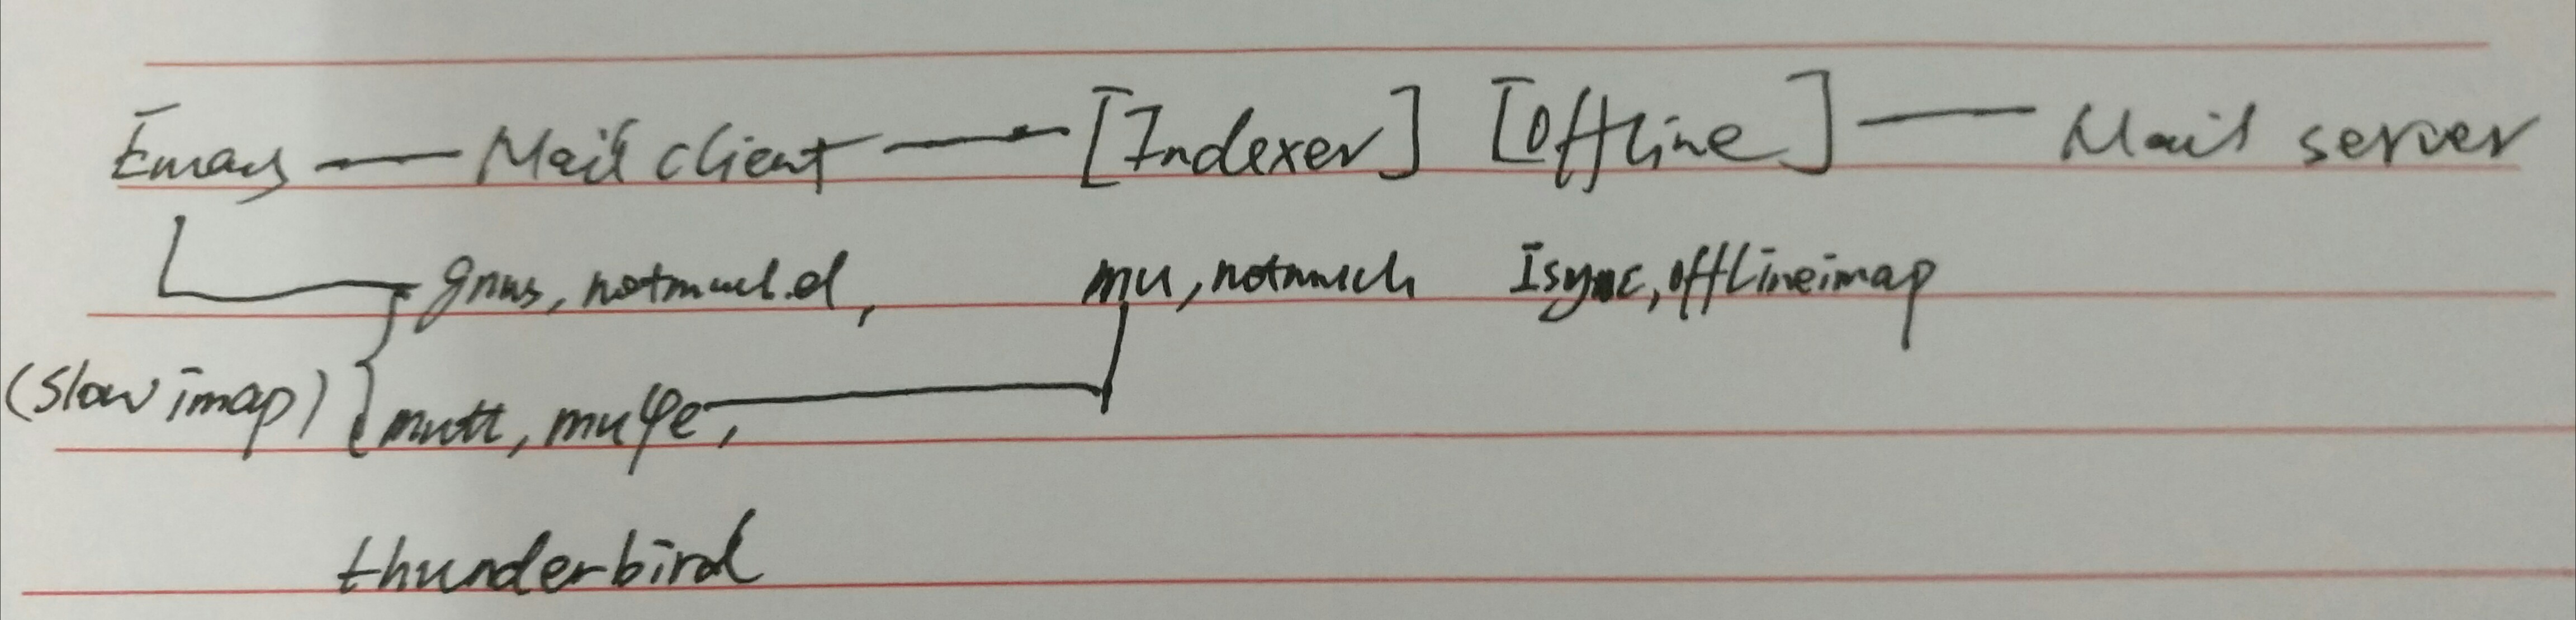 Emacs — Mail client — [Indexer] [Offline] — Mail server
gnus, notmuch.el, mu, notmuch Isync, offlineimap
(slow imap) { mutt, mu4e,
thunderbird